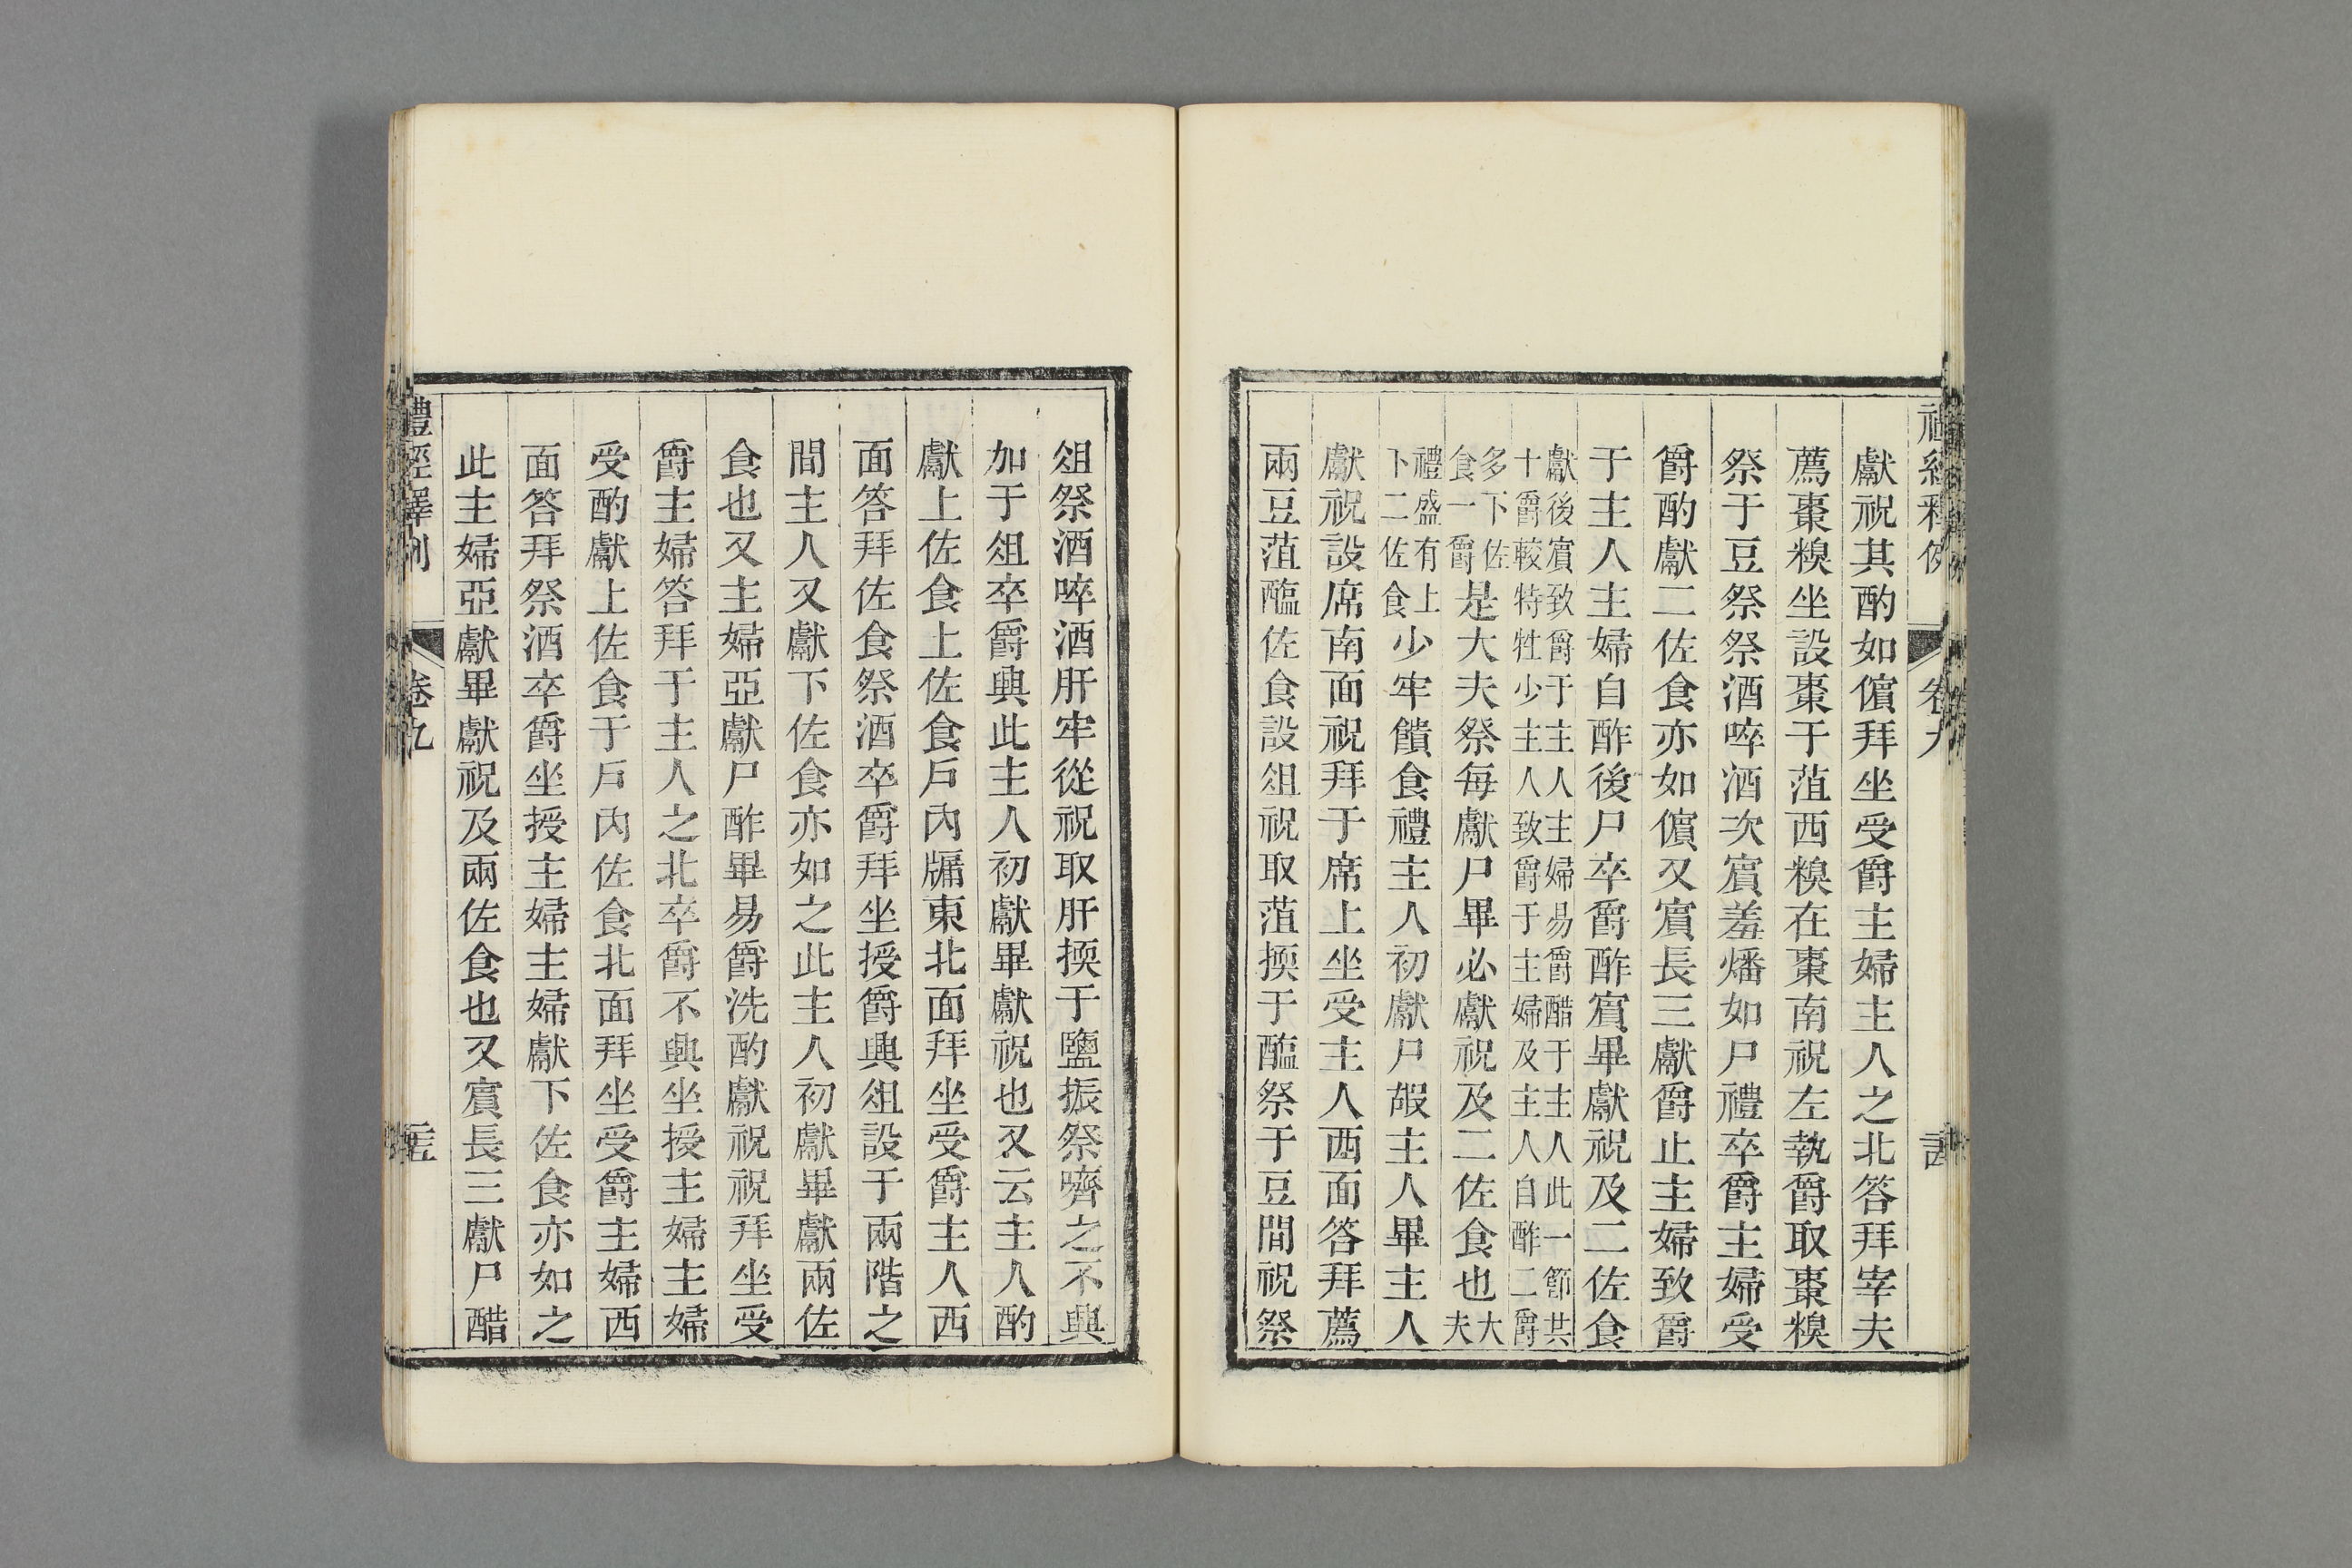 禮經釋例 卷九
獻祝其酌如儐拜坐受爵主婦主人之北答拜宰夫
薦棗糗坐設棗于菹西糗在棗南祝左執爵取棗糗
祭于豆祭祭酒啐酒次賓羞燔如尸禮卒爵主婦受
爵酌獻二佐食亦如儐又賓長三獻爵止主婦致爵
于主人主婦自酢後尸卒爵酢賓畢獻祝及二佐食
獻後賓致爵于主人主婦易爵醋于主人此一節共
十爵較特牲少主人致爵于主婦及主人自酢二爵
多下佐
食一爵
是大夫祭每獻尸畢必獻祝及二佐食也
大
夫
禮盛有上
下二佐食
少牢饋食禮主人初獻尸嘏主人畢主人
獻祝設席南面祝拜于席上坐受主人西面答拜薦
兩豆菹醢佐食設俎祝取菹擩于醢祭于豆間祝祭
俎祭酒啐酒肝牢從祝取肝擩于鹽振祭嚌之不興
加于俎卒爵興此主人初獻畢獻祝也又云主人酌
獻上佐食上佐食戶內牖東北面拜坐受爵主人西
面答拜佐食祭酒卒爵拜坐授爵興俎設于兩階之
間主人又獻下佐食亦如之此主人初獻畢獻兩佐
食也又主婦亞獻尸酢畢易爵洗酌獻祝祝拜坐受
爵主婦答拜于主人之北卒爵不興坐授主婦主婦
受酌獻上佐食于戶內佐食北面拜坐受爵主婦西
面答拜祭酒卒爵坐授主婦主婦獻下佐食亦如之
此主婦亞獻畢獻祝及兩佐食也又賓長三獻尸醋
禮經釋例 卷九